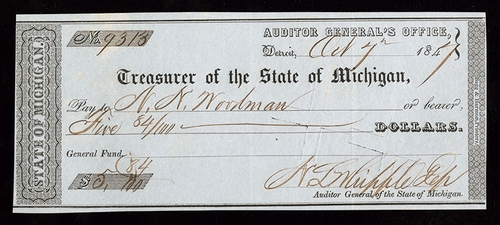 AUDITOR GENERAL'S OFFICE,
No. 9313
Detroit, Oct 7th 1847
STATE OF MICHIGAN.
Treasurer of the State of Michigan,
Pay to A. K. Woodman or bearer,
Five 84/100 DOLLARS.
General Fund.
$5, 84/100
Auditor General, of the State of Michigan.